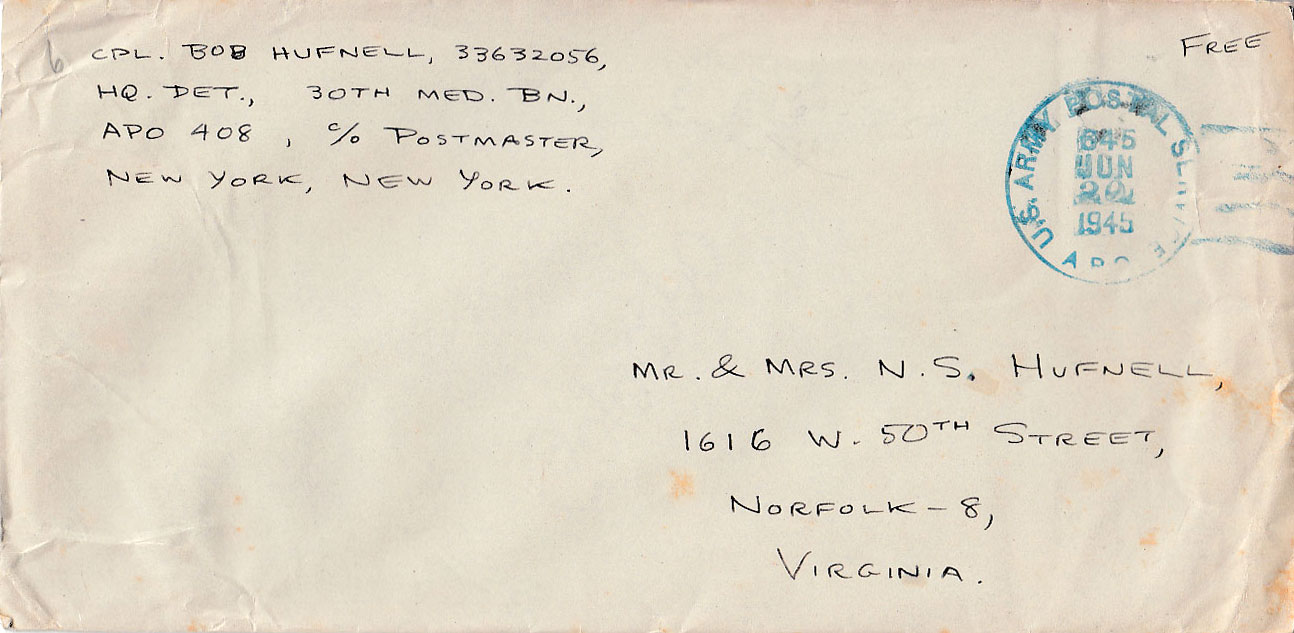 6 CPL. BOB HUFNELL, 33632056,
HQ. DET., 30TH MED. BN.,
APO 408, c/o POSTMASTER,
NEW YORK, NEW YORK.
FREE
U.S. ARMY POSTAL
645
JUN
1945
APO
MR. & MRS. N.S. HUFNELL,
1616 W. 50TH STREET,
NORFOLK-8,
VIRGINIA.